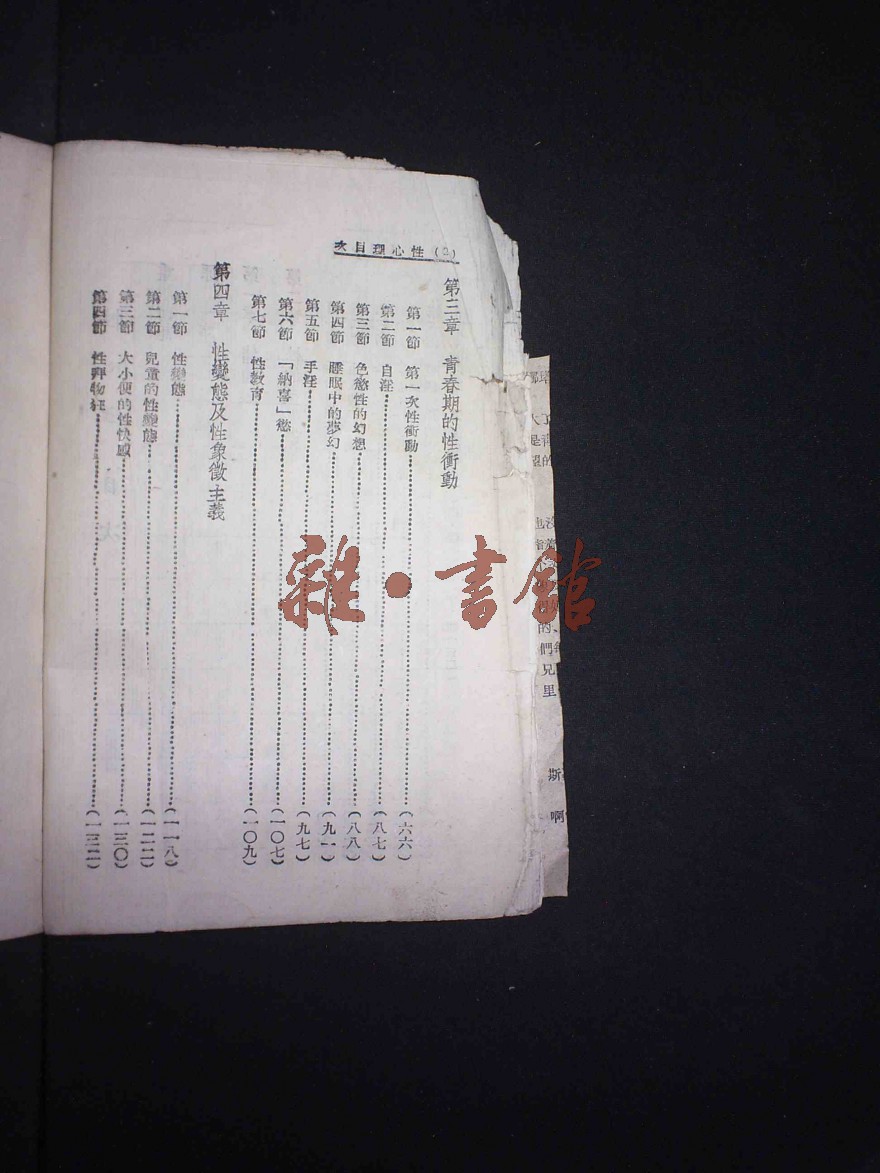 性心理目次 (2)
第三章 青春期的性衝動
第一節 第一次性衝動……(六六)
第二節 自淫……(八七)
第三節 色慾性的幻想……(八八)
第四節 睡眠中的夢幻……(九一)
第五節 手淫……(九七)
第六節 「納喜」慾……(一〇七)
第七節 性教育……(一〇九)
第四章 性變態及性象徵主義
第一節 性變態……(一一八)
第二節 兒童的性變態……(一二二)
第三節 大小便的性快感……(一三〇)
第四節 性擇物狂……(一三二)
雜·書館
大
是
的
也
的
們
兄
里
斯
啊